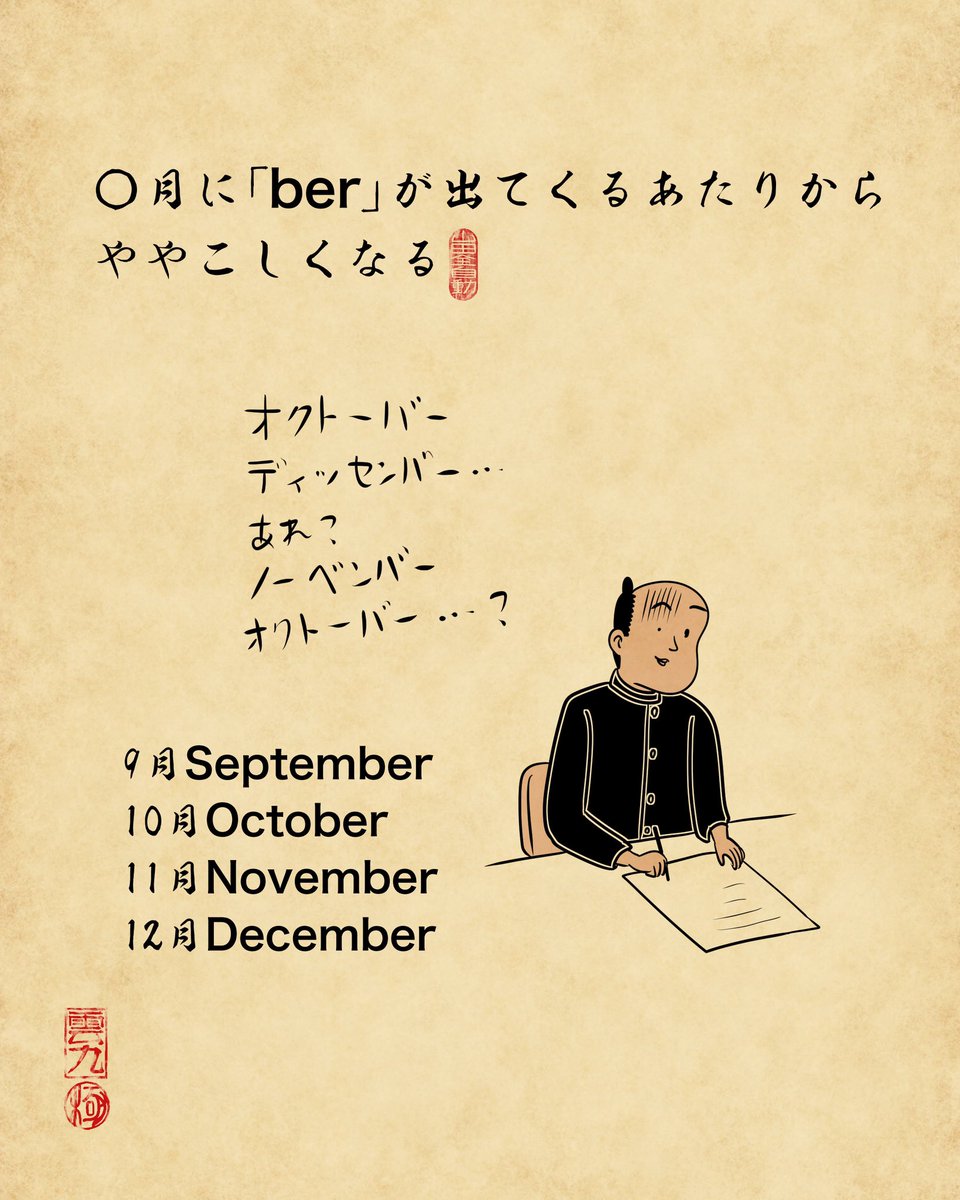 〇月に「ber」が出てくるあたりから
ややこしくなる
オクトーバー
ディッセンバー…
あれ？
ノーベンバー
オクトーバー…？
9月September
10月October
11月November
12月December